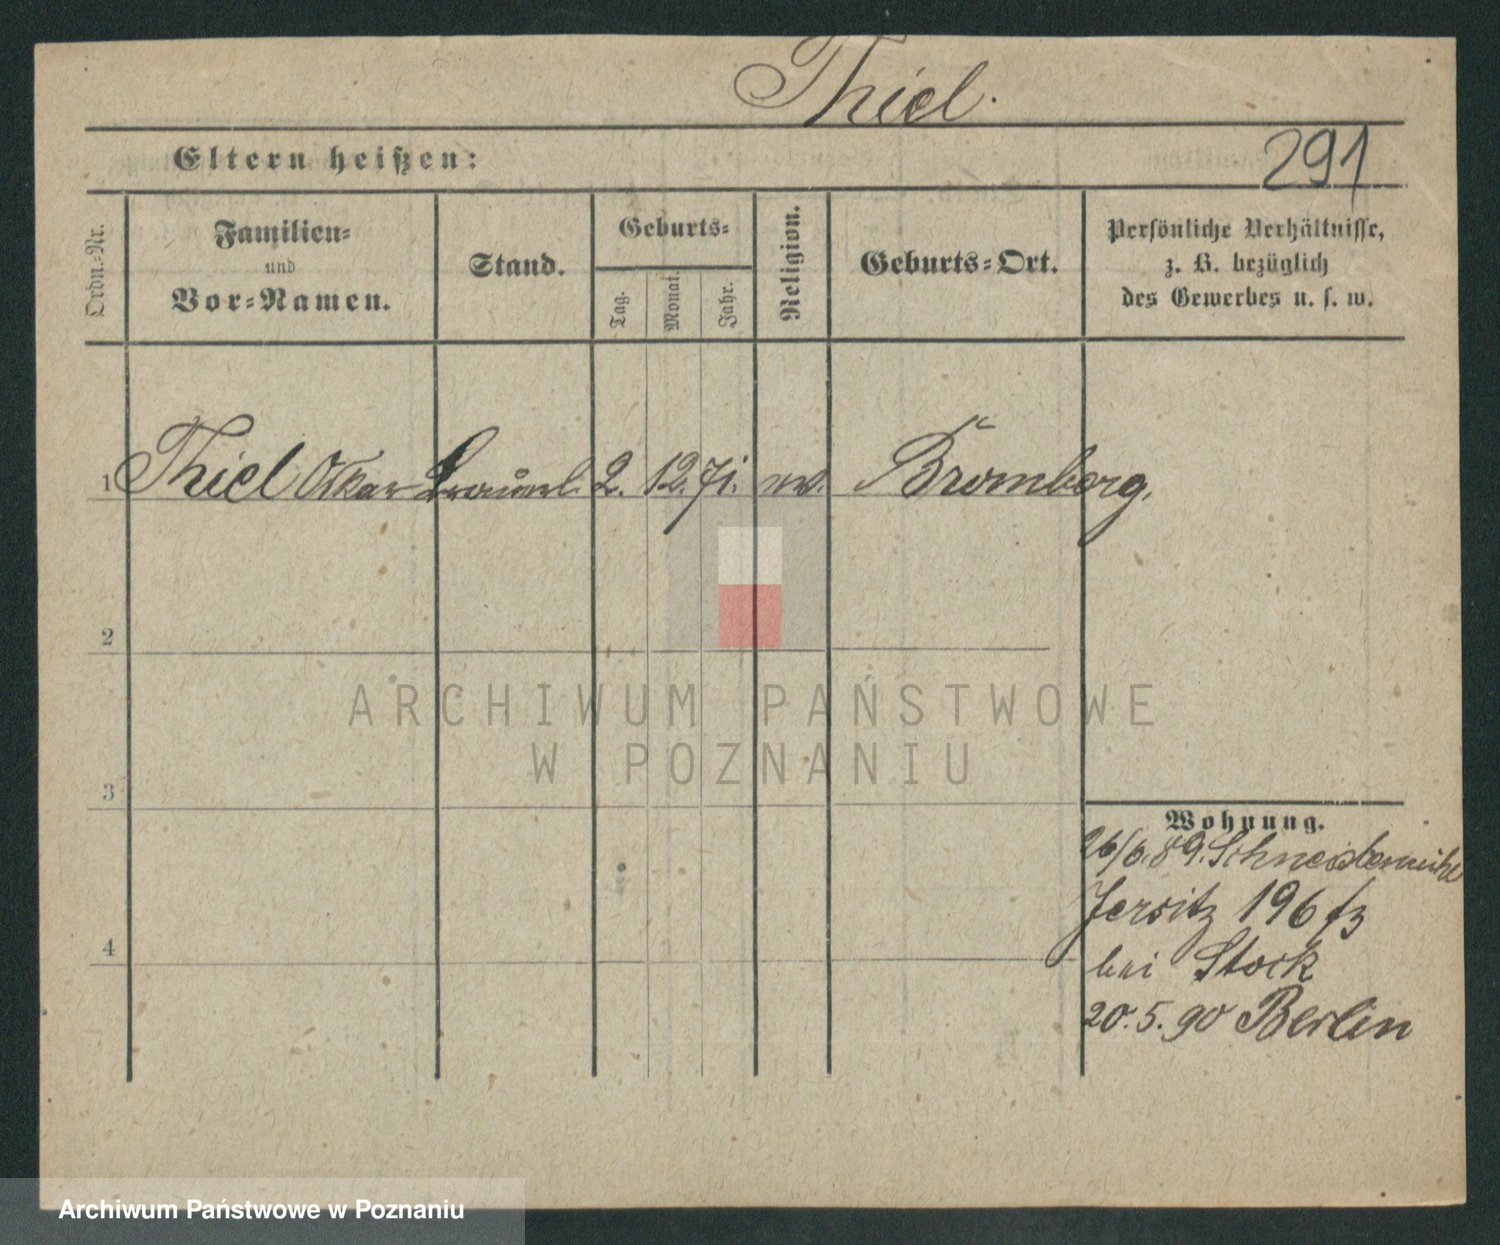 Thiel.
Eltern heißen:
291
Ordn.-Nr.
Familien-
und
Vor-Namen.
Stand.
Geburts-
Tag.
Monat.
Jahr.
Religion.
Geburts-Ort.
Persönliche Verhältnisse,
z. B. bezüglich
des Gewerbes u. s. w.
1 Thiel Oskar 2. 12. 71. ev. Bromberg.
2
3
4
ARCHIWUM PAŃSTWOWE
W POZNANIU
Wohnung.
26/6. 89. Schneidemühl
Jersitz 196 f3
bei Stock
20.5.90 Berlin
Archiwum Państwowe w Poznaniu